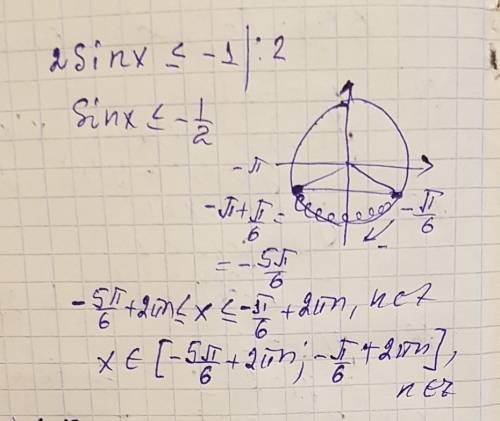 2sinx ≤ -1 | : 2
sinx ≤ -1/2
-π
-π+π/6 =
-π/6
= -5π/6
-5π/6 + 2πn ≤ x ≤ -π/6 + 2πn, n∈z
x ∈ [-5π/6 + 2πn; -π/6 + 2πn],
n∈z